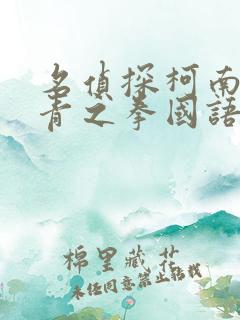 名偵探柯南
青之拳國語
棉里藏花
未经同意禁止转载